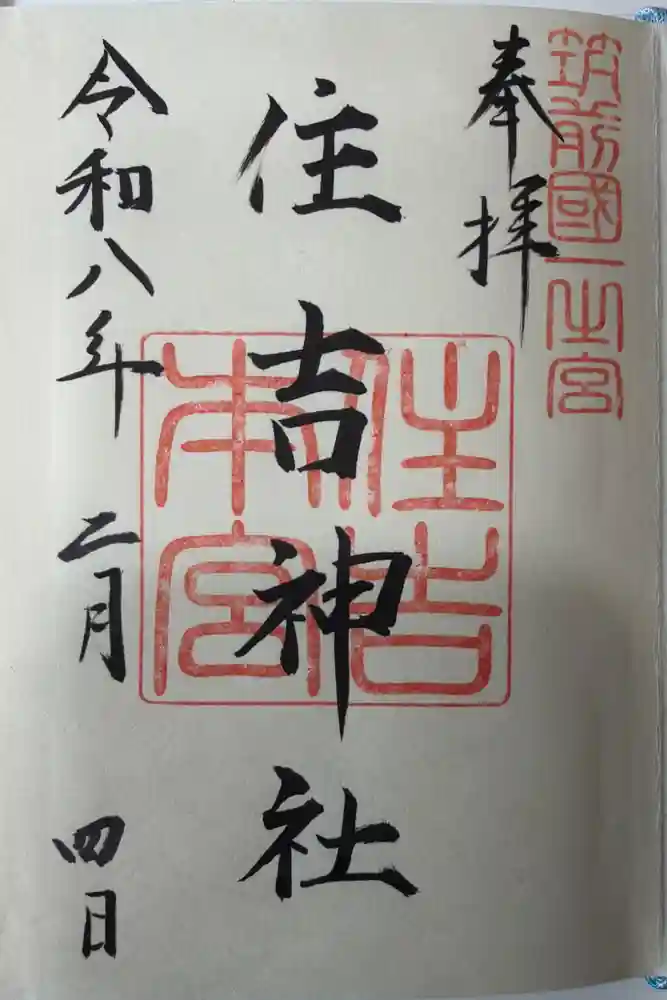 筑前國一之宮
奉拝
住吉神社
住吉
本宮
令和八年二月四日